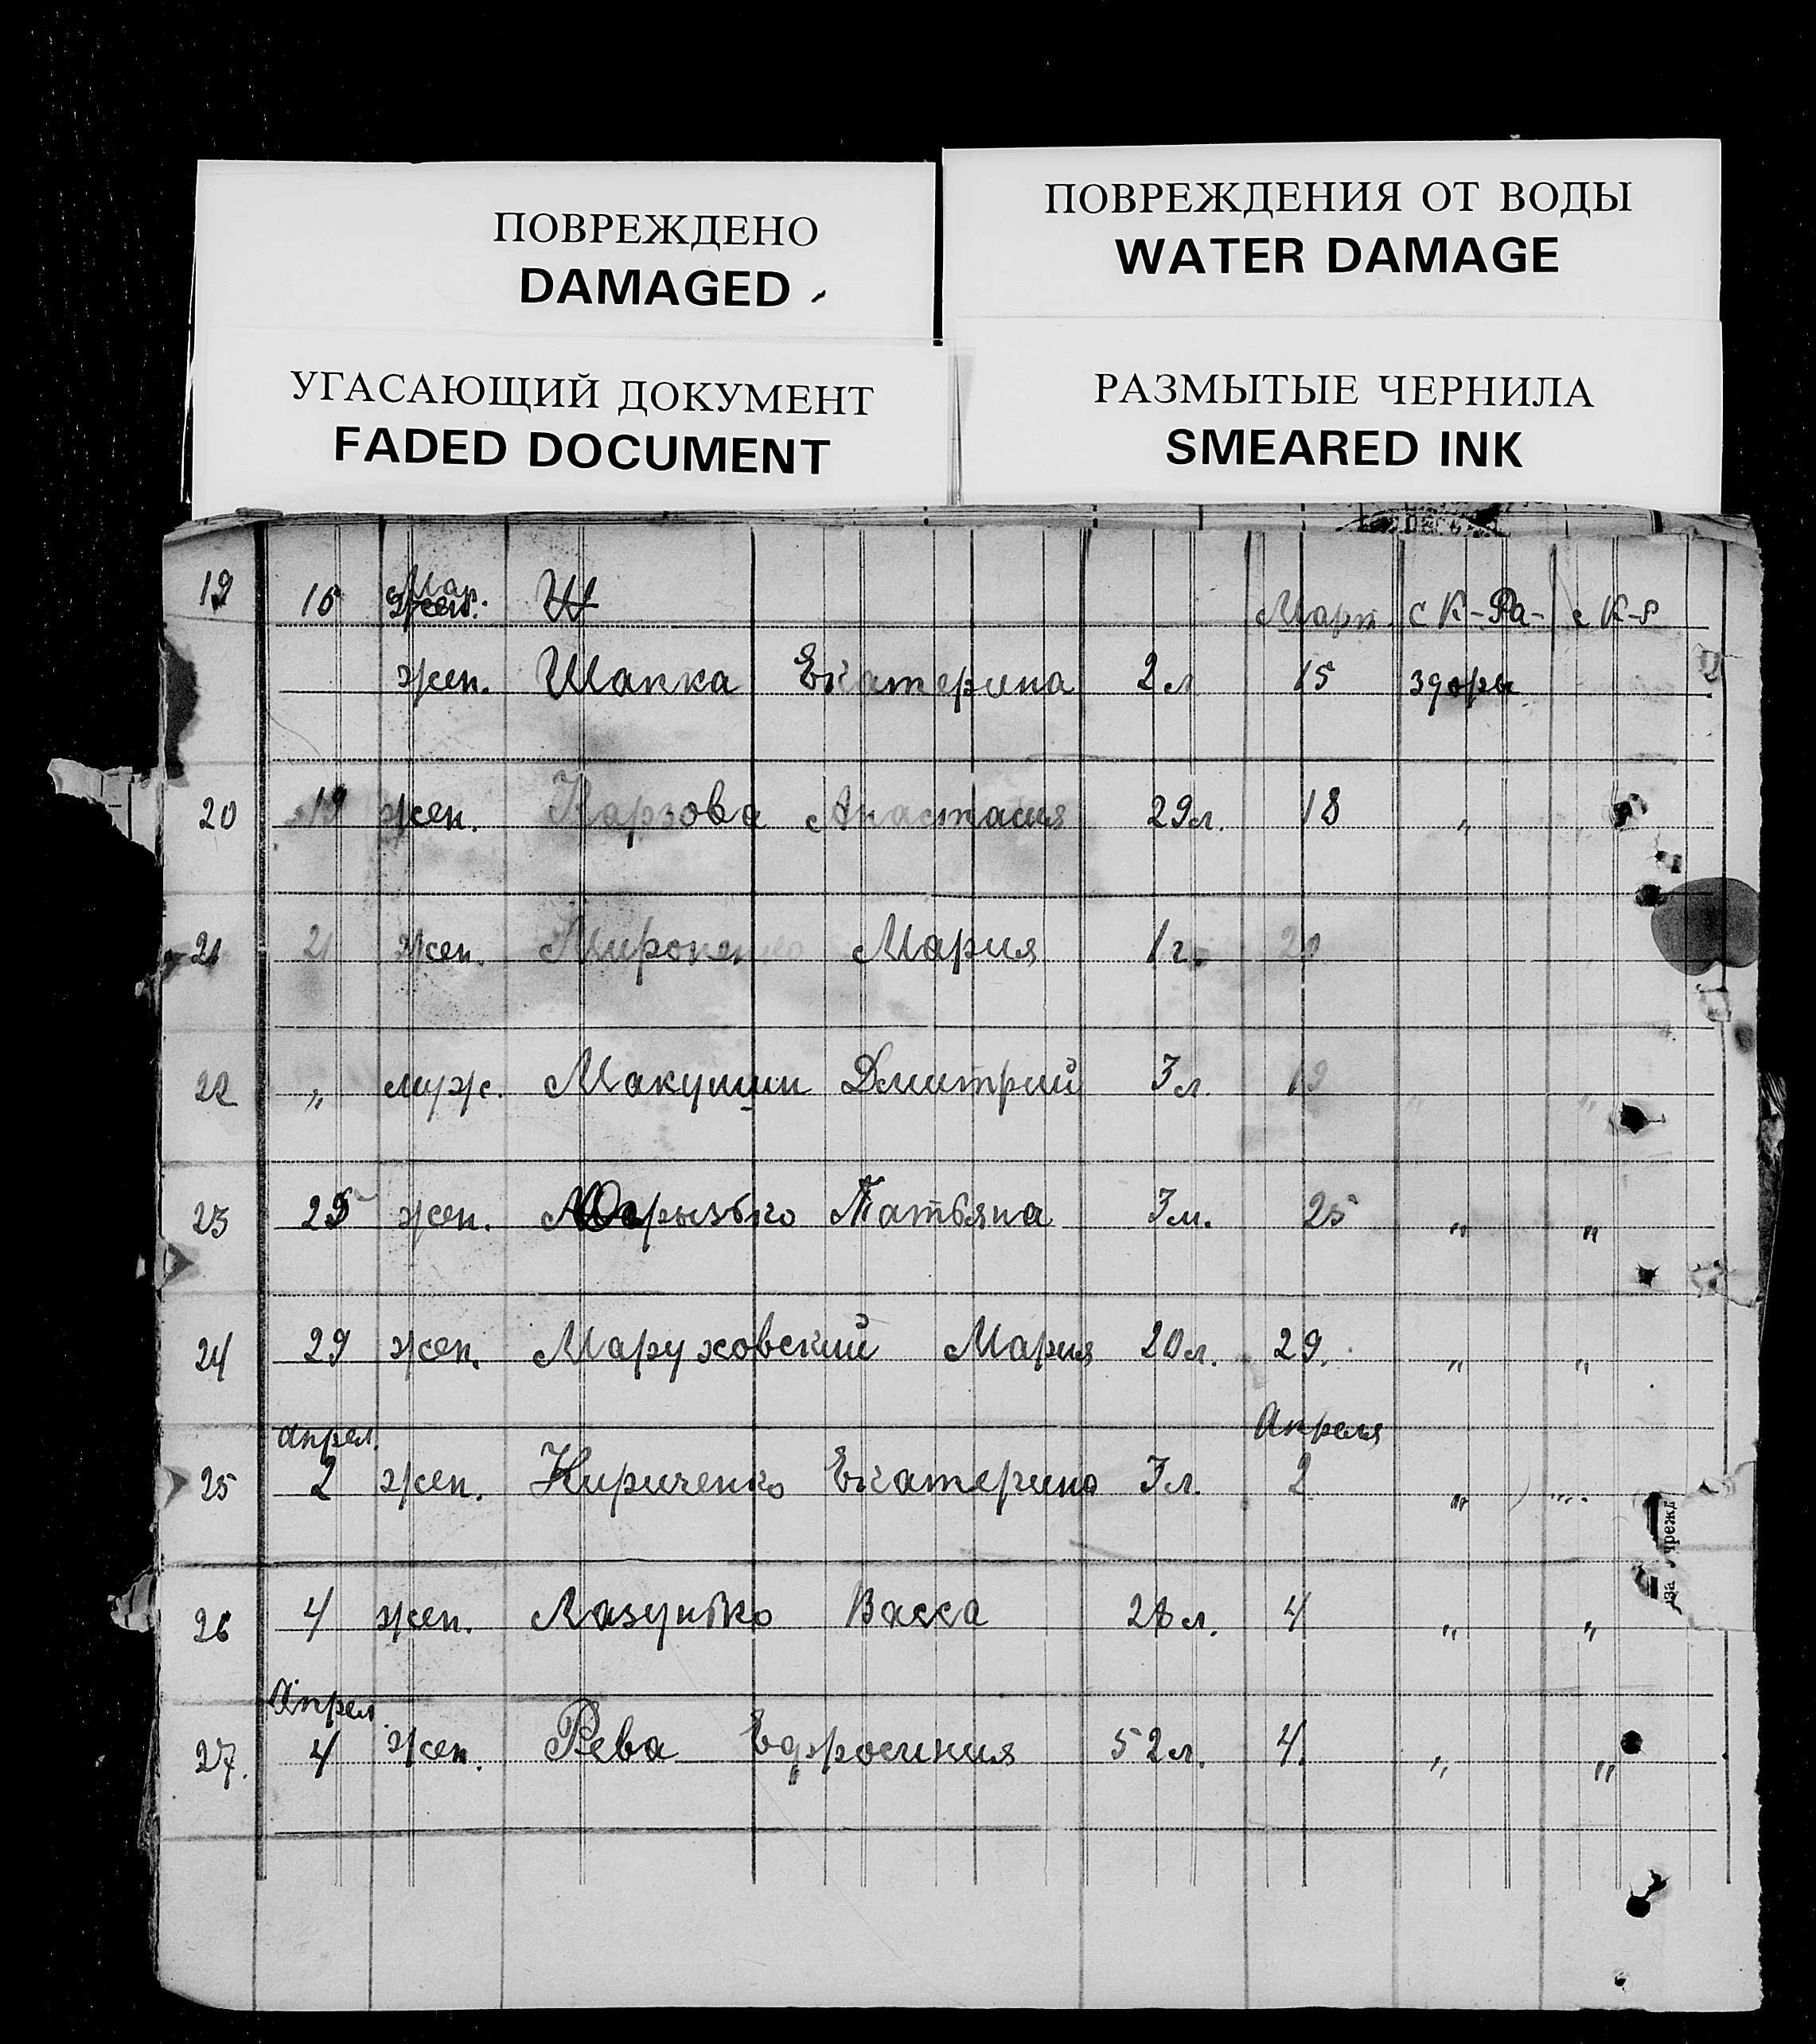 ПОВРЕЖДЕНО
DAMAGED
ПОВРЕЖДЕНИЯ ОТ ВОДЫ
WATER DAMAGE
УГАСАЮЩИЙ ДОКУМЕНТ
FADED DOCUMENT
РАЗМЫТЫЕ ЧЕРНИЛА
SMEARED INK
19 16 Мар. Ш Март с К-Ра- с К-Р
жен. Шапка Екатерина 2 л 15
20 19 жен. Карзова Анастасия 29 л. 18 „
21 21 жен. Мироненко Мария 1 г. 20
22 „ муж. Макушин Дмитрий 3 л. 19 „ „
23 25 жен. Татьяна 3 м. 25 „ „
24 29 жен. Маруховский Мария 20 л. 29. „ „
апрел. Апреля
25 2 жен. Кириченко Екатерина 3 л. 2 „ „
26 4 жен. Васса 28 л. 4 „ „
Апрел
27. 4 жен. Рева Ефросиния 52 л. 4. „ „
чрежд